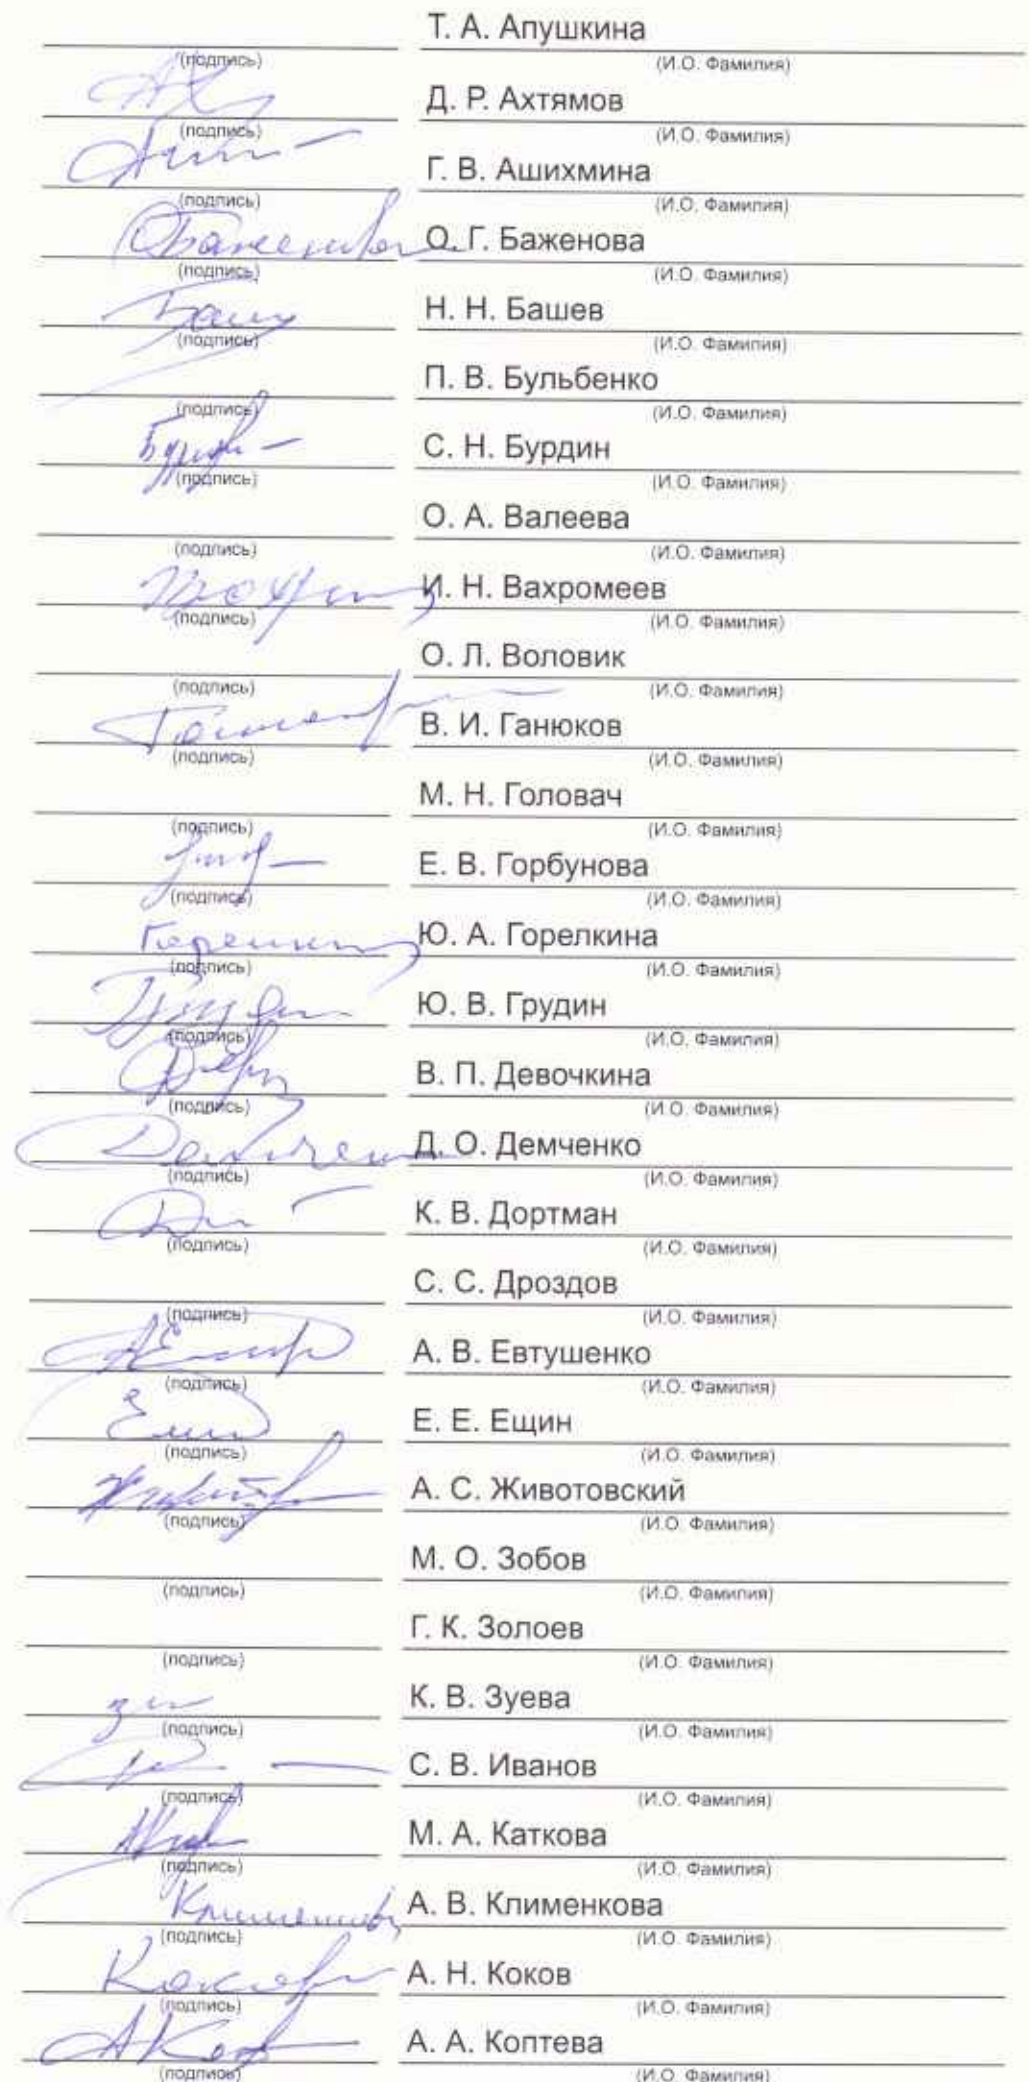 Т. А. Апушкина
(подпись) (И.О. Фамилия)
Д. Р. Ахтямов
(подпись) (И.О. Фамилия)
Г. В. Ашихмина
(подпись) (И.О. Фамилия)
О. Г. Баженова
(подпись) (И.О. Фамилия)
Н. Н. Башев
(подпись) (И.О. Фамилия)
П. В. Бульбенко
(подпись) (И.О. Фамилия)
С. Н. Бурдин
(подпись) (И.О. Фамилия)
О. А. Валеева
(подпись) (И.О. Фамилия)
И. Н. Вахромеев
(подпись) (И.О. Фамилия)
О. Л. Воловик
(подпись) (И.О. Фамилия)
В. И. Ганюков
(подпись) (И.О. Фамилия)
М. Н. Головач
(подпись) (И.О. Фамилия)
Е. В. Горбунова
(подпись) (И.О. Фамилия)
Ю. А. Горелкина
(подпись) (И.О. Фамилия)
Ю. В. Грудин
(подпись) (И.О. Фамилия)
В. П. Девочкина
(подпись) (И.О. Фамилия)
Д. О. Демченко
(подпись) (И.О. Фамилия)
К. В. Дортман
(подпись) (И.О. Фамилия)
С. С. Дроздов
(подпись) (И.О. Фамилия)
А. В. Евтушенко
(подпись) (И.О. Фамилия)
Е. Е. Ещин
(подпись) (И.О. Фамилия)
А. С. Животовский
(подпись) (И.О. Фамилия)
М. О. Зобов
(подпись) (И.О. Фамилия)
Г. К. Золоев
(подпись) (И.О. Фамилия)
К. В. Зуева
(подпись) (И.О. Фамилия)
С. В. Иванов
(подпись) (И.О. Фамилия)
М. А. Каткова
(подпись) (И.О. Фамилия)
А. В. Клименкова
(подпись) (И.О. Фамилия)
А. Н. Коков
(подпись) (И.О. Фамилия)
А. А. Коптева
(подпись) (И.О. Фамилия)